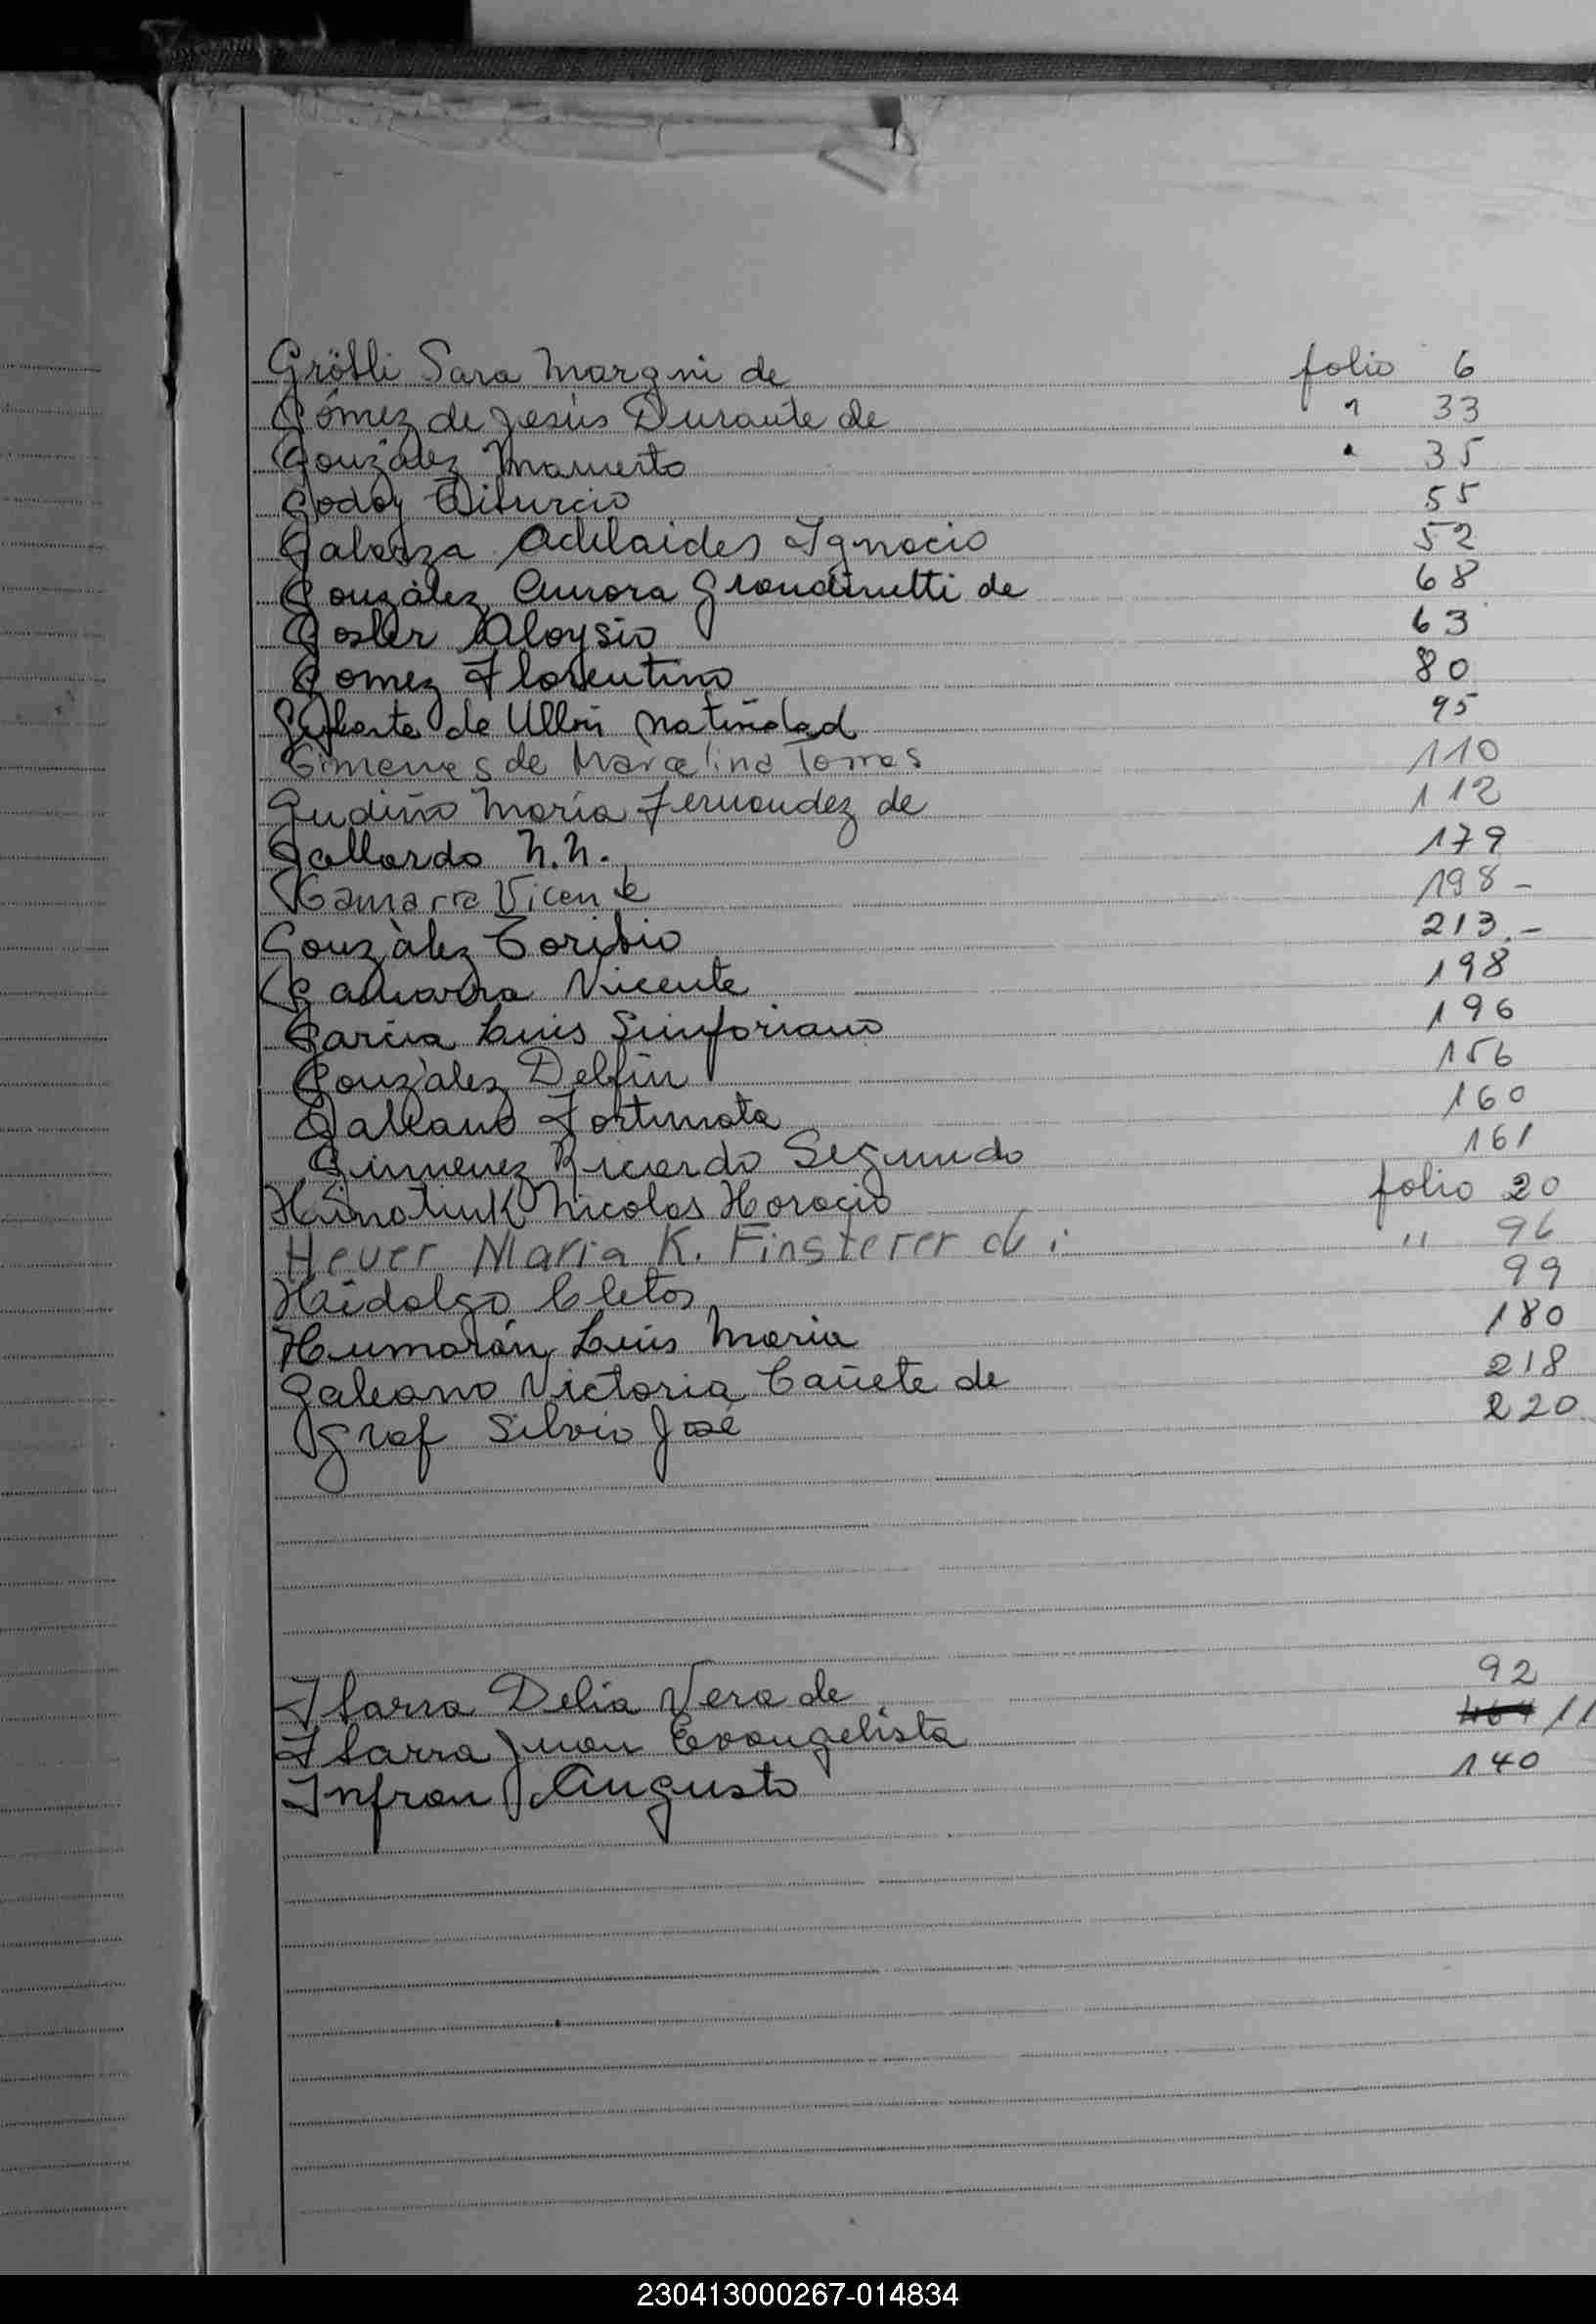 Grötli Sara Margni de folio 6
Gómez de Jesús Durante de " 33
González Mamerto " 35
Godoy Tiburcio 55
Galarza Adelaides Ignacio 52
González Aurora Grandinetti de 68
Goster Aloysio 63
Gomez Florentino 80
de Natividad 95
Gimenes de Marcelina Torres 110
Gudiño María Fernandez de 112
Gallardo N.N. 179
Gamarra Vicente 198-
González Toribio 213.-
Gamarra Vicente 198
García Luis Sinforiano 196
González Delfín 156
Galeano Fortunata 160
Gimenez Ricardo Segundo 161
Nicolas Horacio folio 20
Hever Maria K. Finsterer de " 96
Hidalgo Cletos 99
Humarán Luis Maria 180
Galeano Victoria Cañete de 218
Graf Silvio José 220
Ibarra Delia Vera de 92
Ibarra Juan Evangelista 11
Infran Augusto 140
230413000267-014834